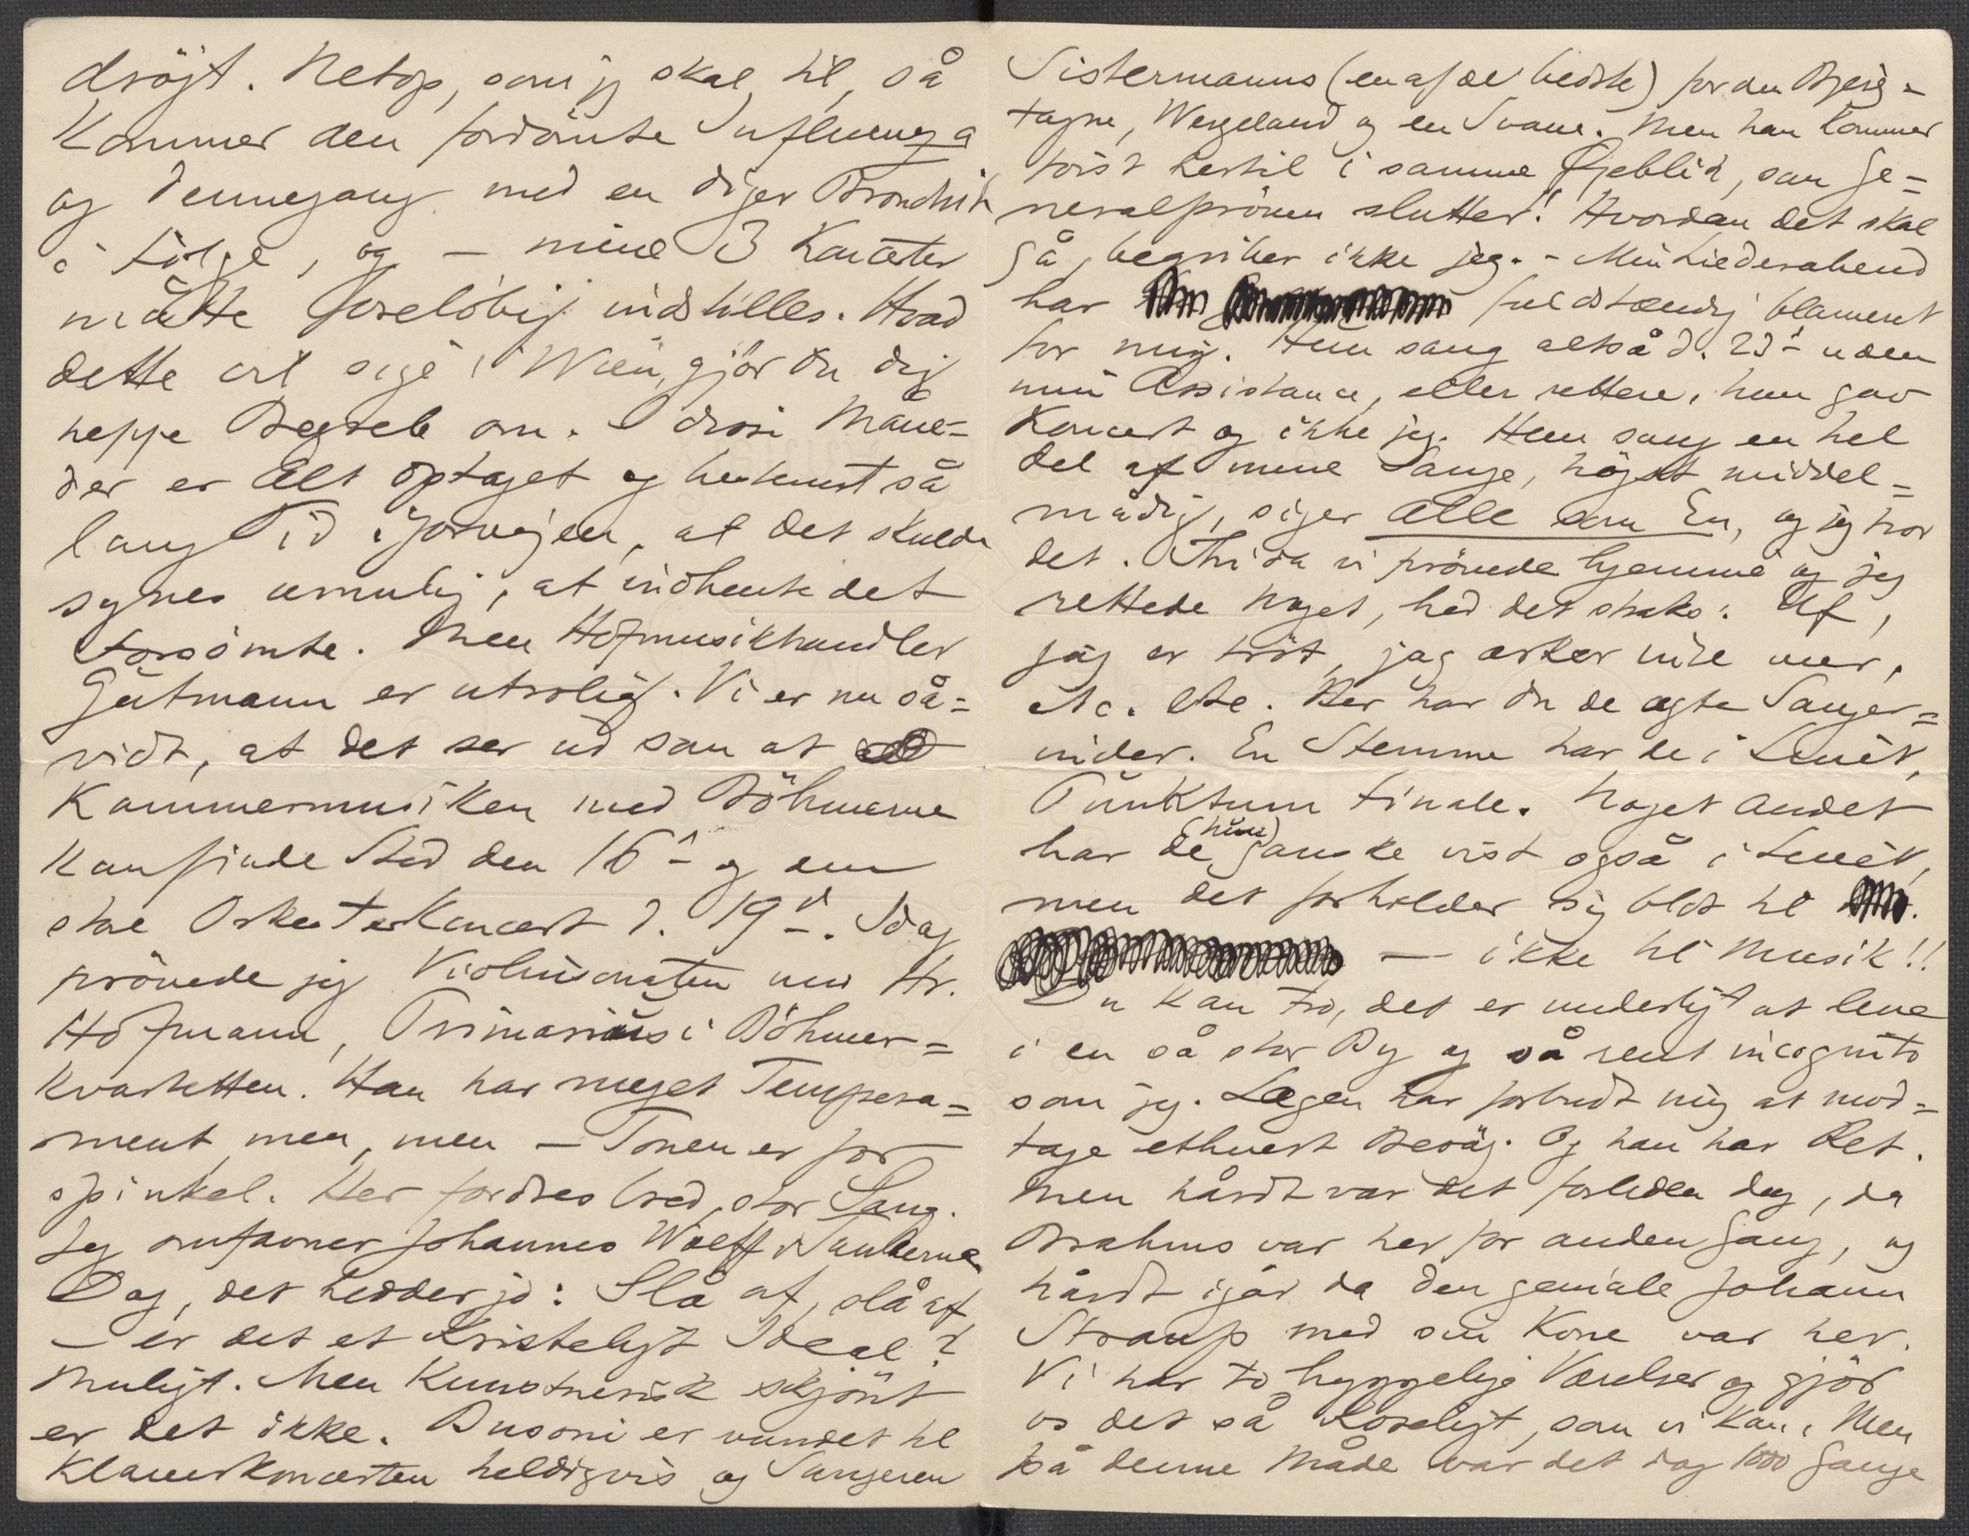 drøjt. Netop, som jeg skal til, så
kommer den fordömte Influenza
og dennegang med en diger Bronchit
i Følge, og – mine 3 Koncerter
måtte foreløbig indstilles. Hvad
dette vil sige i Wien, gjör du dig
neppe Begreb om. I disse Måne=
der er Alt optaget og bestemt så
lang Tid i Forvejen, at det skulde
synes umulig, at indhente det
forsömte. Men Hofmusikhandler
Gutmann er utrolig. Vi er nu så=
vidt, at det ser ud som at
Kammermusiken med Böhmerne
kan finde Sted den 16de og den
store Orkesterkoncert d. 19de. Idag
prövede jeg Violinsonaten med Hr.
Hofmann, Primarius i Böhmer=
kvartetten. Han har meget Tempera=
ment, men, men – Tonen er for
spinkel. Her fordres bred, stor Sang.
Jeg omfavner Johannes Wolff i Tankerne.
Dog, det hedder jo: Slå af, slå af
– er det et kristeligt Ideal?
Muligt. Men kunstnerisk skjönt
er det ikke. Busoni er vundet til
Klaverkoncerten heldigvis og Sangeren
Sistermanns (en af de bedste) for den Bjerg=
tagne, Wergeland og en Svane. Men han kommer
först hertil i samme Øjeblik, som Ge=
neralpröven slutter! Hvordan det skal
gå, begriber ikke jeg. – Min Liederabend
har fuldstændig blameret
for mig. Hun sang altså d. 23de uden
min Assistance, eller rettere, hun gav
Koncert og ikke jeg. Hun sang en hel
del af mine Sange, højst middel=
mådig, siger alle som En, og jeg tror
det. Thi da vi prövede hjemme og jeg
rettede noget, hed det straks: Uf,
jag er tröt, jag orker inte mer,
etc. etc. Der har du de ægte Sanger=
inder. En Stemme har de i Livet,
Punktum finale. Noget andet
har de (hun) ganske vist også i Livet,
men det forholder sig blot til
– ikke til Musik!!
Du kan tro, det er underligt at leve
i en så stor By og så rent incognito
som jeg. Lægen har forbudt mig at mod=
tage ethvert Besög. Og han har Ret.
Men hårdt var det forleden dag, da
Brahms var her for anden Gang, og
hårdt igår da den geniale Johann
Strauss med sin Kone var her.
Vi har to hyggelige Værelser og gjör
os det så koseligt, som vi kan. Men
på denne Måde var det dog 1000 Gange